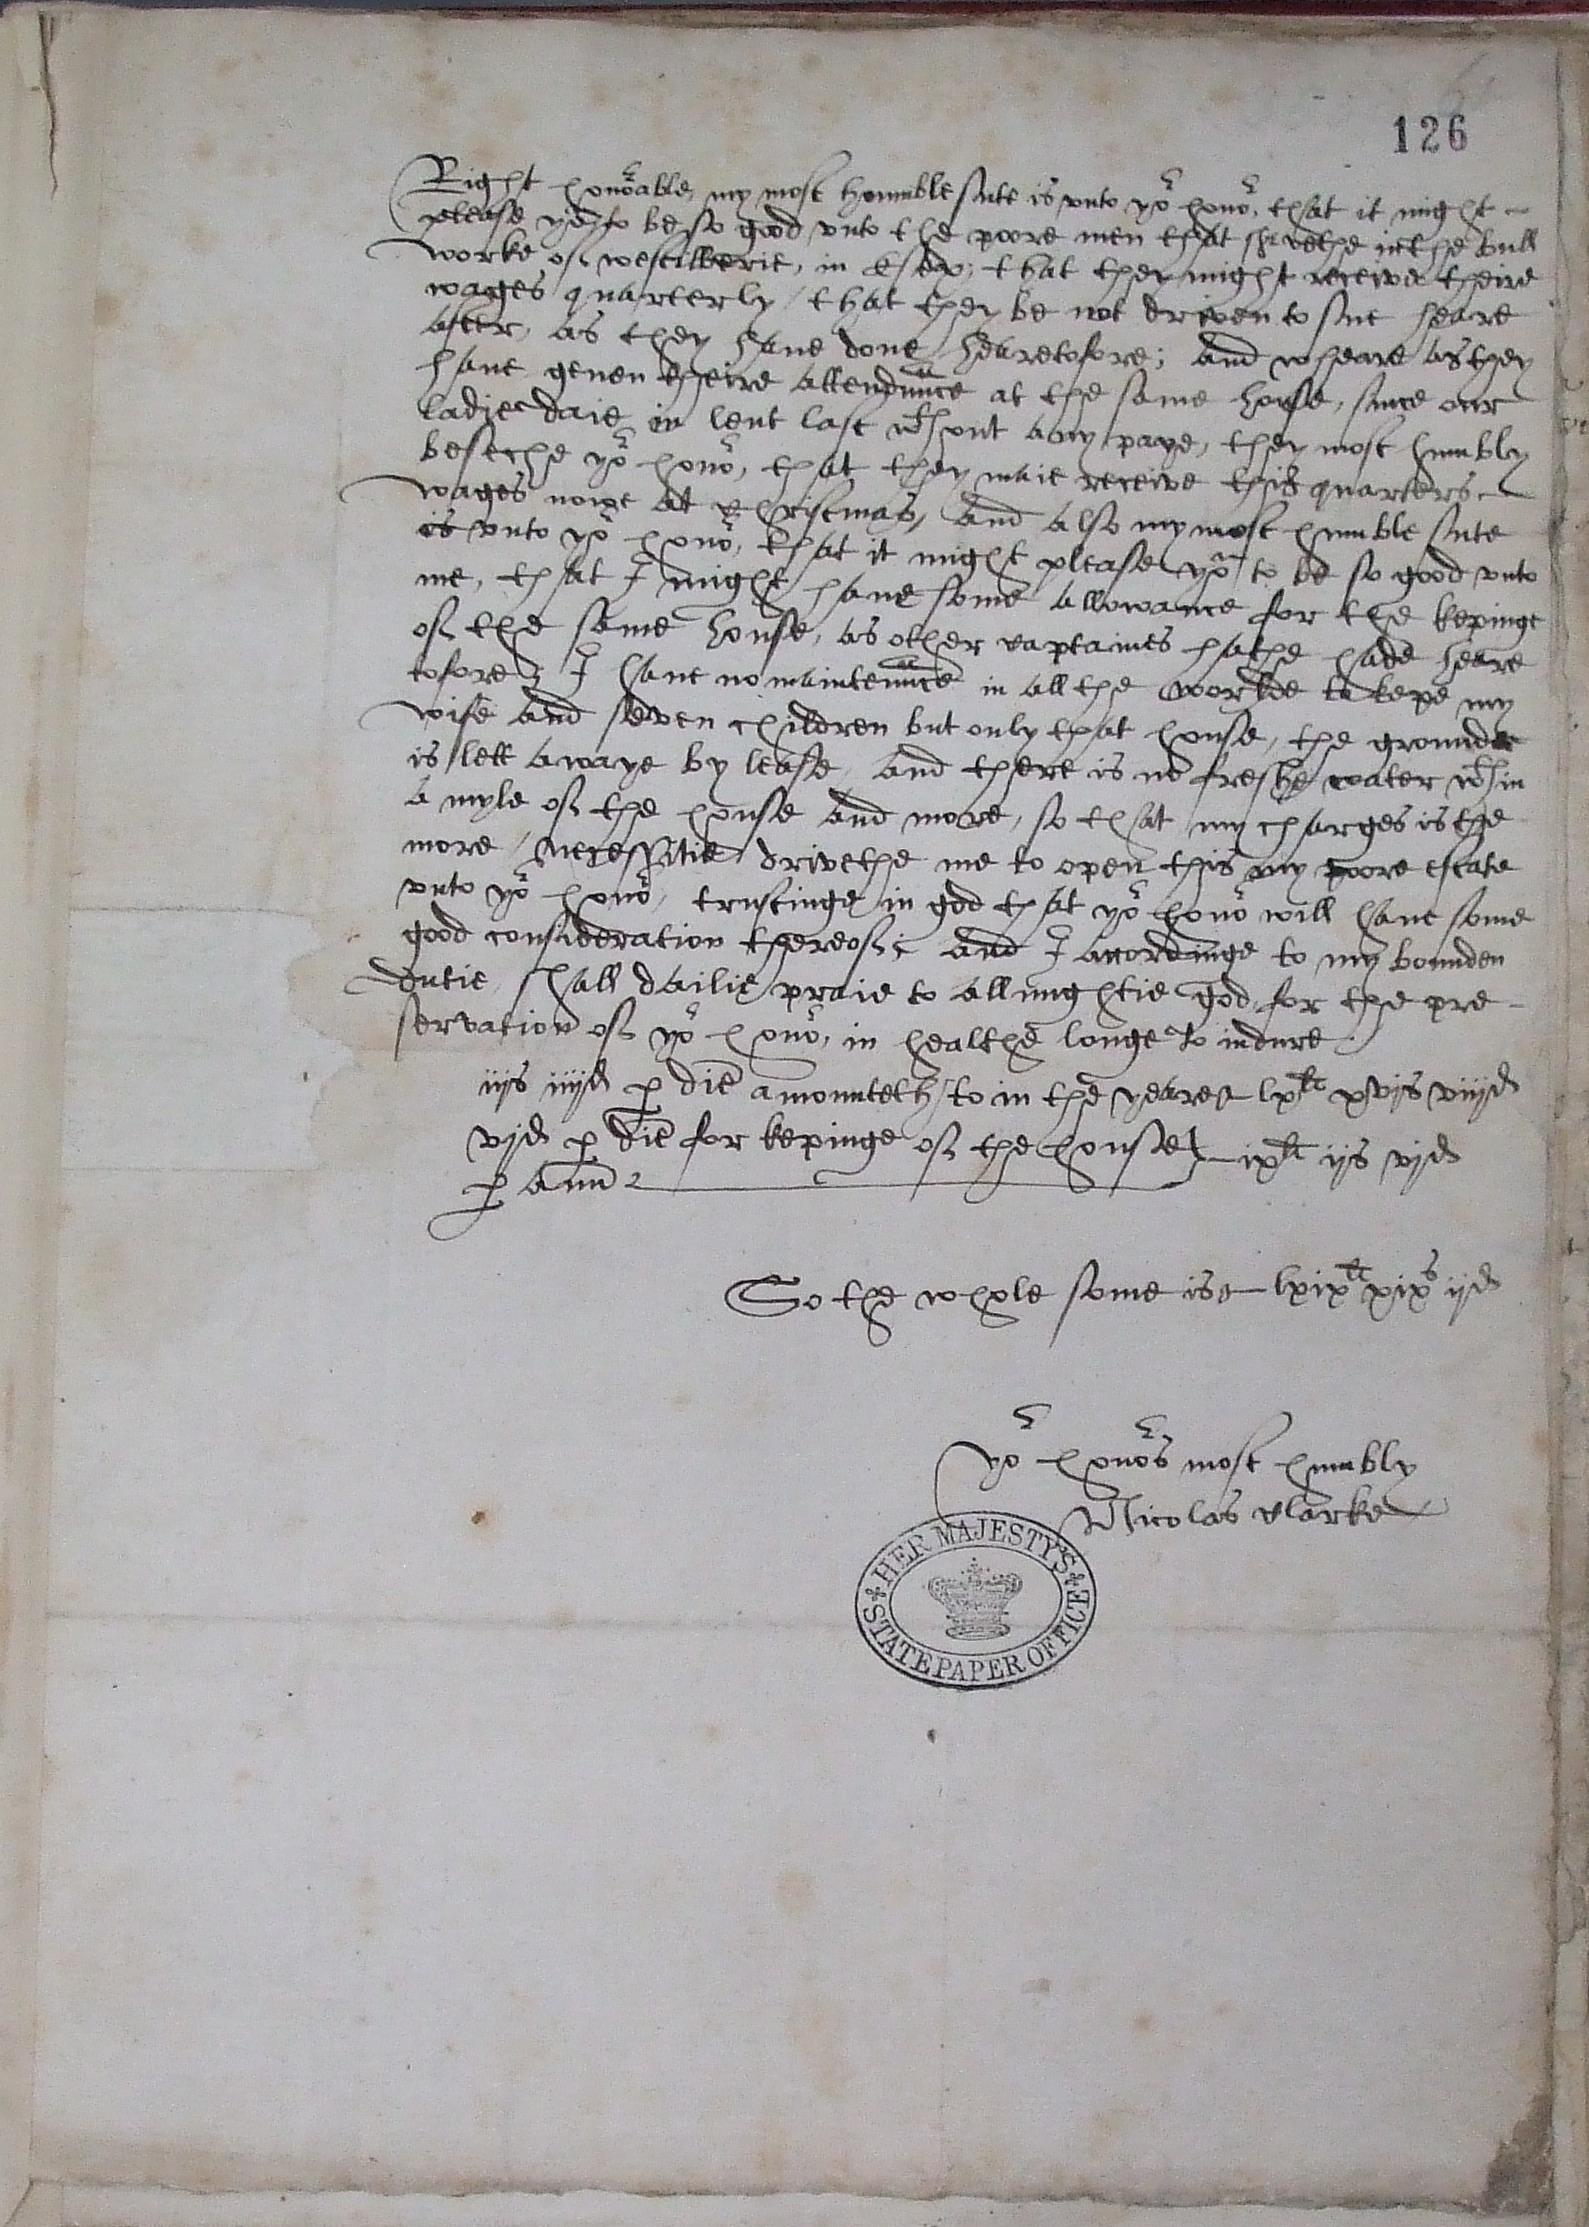 126
Right honorable, my most houmble sute is vnto yor honor, that it might
please you to be so good vnto the poore men that servethe in the bull
worke of westilberie, in Esex, that they might receive theire
wages quarterly / that they be not driven to sue heare
after, as they haue done hearetofore; and wheare as they
haue geuen theire attendaunce at the same house, since our
ladye daie in lent last wthout any paye, they most humbly
beseche yor honor, that they maie receive this quarters
wages nowe at Christmas, and also my most humble sute
is vnto yor honor, that it might please you to be so good vnto
me, that I might haue some allowance for the kepinge
of the same house, as other captaines hathe hade heare
tofore; I haue no maintenaunce in all the worlde to kepe my
wife and seven children but only that house, the grounde
is lett awaye by lease, and there is no freshe water wthin
a myle of the house and more, so that my charges is the
more / necessitie drivethe me to open this my poore estate
vnto yor honor, trustinge in god that yor honor will haue some
good consideration thereof; and I accordinge to my bounden
dutie, shall dailie praie to allmightie god for the pre-
servation of yor honor, in healthe longe to indure.
iijs iiijd per diē amounteth to in the yeare lxli xvjs viijd
vjd per diē for kepinge of the house} ixli ijs vjd
per annū
So the whole some is lxixli xixs ijd
yor honors most humbly
Nicolas Clarke
HER MAJESTY'S
STATE PAPER OFFICE